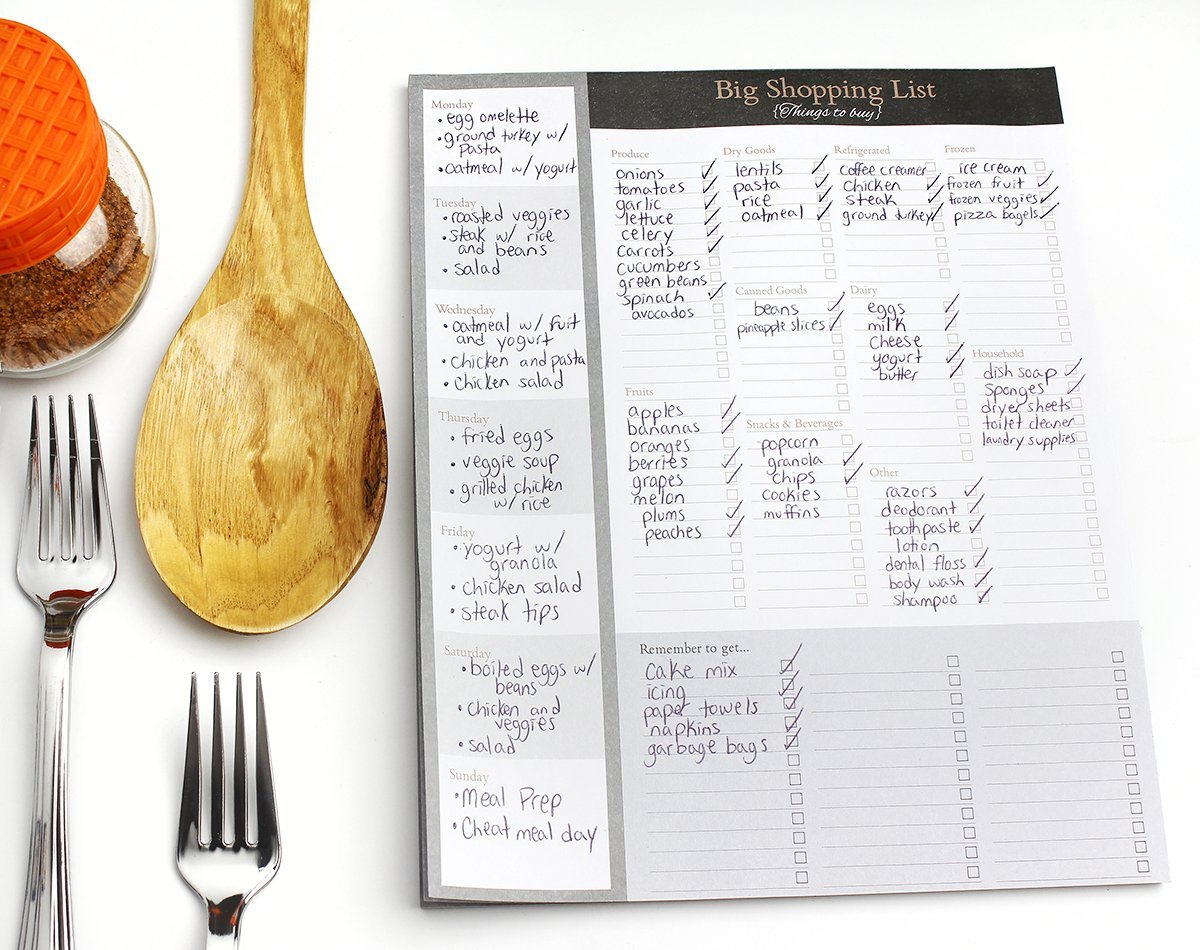 Big Shopping List
{Things to buy}
Monday
• egg omelette
• ground turkey w/
pasta
• oatmeal w/ yogurt
Tuesday
• roasted veggies
• steak w/ rice
and beans
• salad
Wednesday
• oatmeal w/ fruit
and yogurt
• Chicken and pasta
• Chicken salad
Thursday
• fried eggs
• veggie soup
• grilled chicken
w/ rice
Friday
• yogurt w/
granola
• chicken salad
• steak tips
Saturday
• boiled eggs w/
beans
• chicken and
veggies
• salad
Sunday
• Meal Prep
• Cheat meal day
Produce
onions
tomatoes
garlic
lettuce
celery
carrots
cucumbers
green beans
spinach
avocados
Fruits
apples
bananas
oranges
berries
grapes
melon
plums
peaches
Dry Goods
lentils
pasta
rice
oatmeal
Canned Goods
beans
pineapple slices
Snacks & Beverages
popcorn
granola
chips
cookies
muffins
Refrigerated
coffee creamer
Chicken
steak
ground turkey
Dairy
eggs
milk
cheese
yogurt
butter
Other
razors
deodorant
toothpaste
lotion
dental floss
body wash
shampoo
Frozen
ice cream
frozen fruit
frozen veggies
pizza bagels
Household
dish soap
Sponges
dryer sheets
toilet cleaner
laundry supplies
Remember to get...
Cake mix
icing
paper towels
napkins
garbage bags